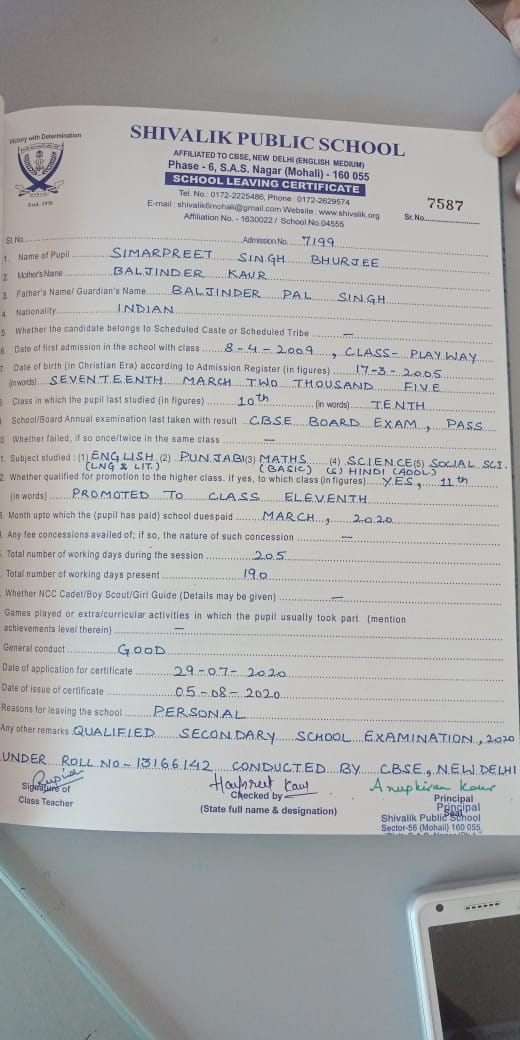 Victory with Determination
SHIVALIK PUBLIC SCHOOL
AFFILIATED TO CBSE, NEW DELHI (ENGLISH MEDIUM)
Phase - 6, S.A.S. Nagar (Mohali) - 160 055
SCHOOL LEAVING CERTIFICATE
Tel. No.: 0172-2225486, Phone : 0172-2629574
E-mail : shivalik6mohali@gmail.com Website : www.shivalik.org
Affiliation No. - 1630022 / School No.04555
Estd. 1976
Sr.No. 7587
Sl.No. Admission No. 7199
1. Name of Pupil SIMARPREET SINGH BHURJEE
2. Mother's Name BALJINDER KAUR
3. Father's Name/ Guardian's Name BALJINDER PAL SINGH
4. Nationality INDIAN
5. Whether the candidate belongs to Scheduled Caste or Scheduled Tribe —
6. Date of first admission in the school with class 8-4-2009, CLASS- PLAYWAY
7. Date of birth (in Christian Era) according to Admission Register (in figures) 17-3-2005
(in words) SEVENTEENTH MARCH TWO THOUSAND FIVE
Class in which the pupil last studied (in figures) 10th (in words) TENTH
School/Board Annual examination last taken with result CBSE BOARD EXAM, PASS
0. Whether failed, if so once/twice in the same class —
1. Subject studied : (1) ENGLISH (2) PUNJABI (3) MATHS (4) SCIENCE (5) SOCIAL SCI.
(LNG & LIT.) (BASIC) (6) HINDI (ADDL)
2. Whether qualified for promotion to the higher class. If yes, to which class (in figures) YES, 11th
(in words) PROMOTED TO CLASS ELEVENTH
3. Month upto which the (pupil has paid) school dues paid MARCH, 2020
Any fee concessions availed of; if so, the nature of such concession —
Total number of working days during the session 205
Total number of working days present 190
Whether NCC Cadet/Boy Scout/Girl Guide (Details may be given) —
Games played or extra/curricular activities in which the pupil usually took part (mention
achievements level therein) —
General conduct GOOD
Date of application for certificate 29-07-2020
Date of issue of certificate 05-08-2020
Reasons for leaving the school PERSONAL
Any other remarks QUALIFIED SECONDARY SCHOOL EXAMINATION, 2020
UNDER ROLL NO- 13166142 CONDUCTED BY CBSE, NEW DELHI
Harpreet Kaur Anupkiran Kaur
Signature of Checked by Principal
Class Teacher (State full name & designation) Principal
Seal
Shivalik Public School
Sector-56 (Mohali) 160 055